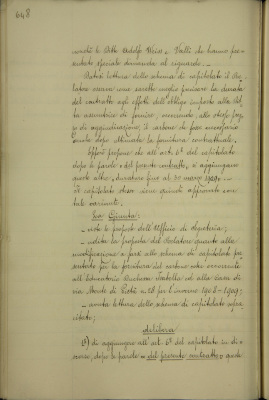 648
nonchè le Ditte Adolfo Weiss e Valli che hanno pre-
sentato speciale domanda al riguardo. —
Datasi lettura dello schema di capitolato il Re-
latore osserva come sarebbe meglio precisare la durata
del contratto agli effetti dell'obbligo imposto alla Dit-
ta assuntrice di fornire, occorrendo, allo stesso prez-
zo di aggiudicazione, il carbone che fosse necessario
anche dopo ultimata la fornitura contrattuale.
propone che all'art. 6° del capitolato
dopo le parole "del presente contratto" si aggiungano
quest'altre "duraturo fino al 30 marzo 1909" —
Il capitolato stesso viene quindi approvato con
tale variante.
La Giunta:
— viste le proposte dell'Ufficio di
— udita la proposta del Relatore quanto alla
modificazione a farsi allo schema di capitolato pre-
sentato per la fornitura del carbone coke occorrente
all'Educatorio Duchessa Isabella ed alla casa di
via Monte di Pietà n. 28 per l'inverno 1908-1909;
— avuta lettura dello schema di capitolato sopra-
citato;
delibera
1°) di aggiungere all'art. 6° del capitolato in di-
scorso, dopo le parole "del presente contratto" queste